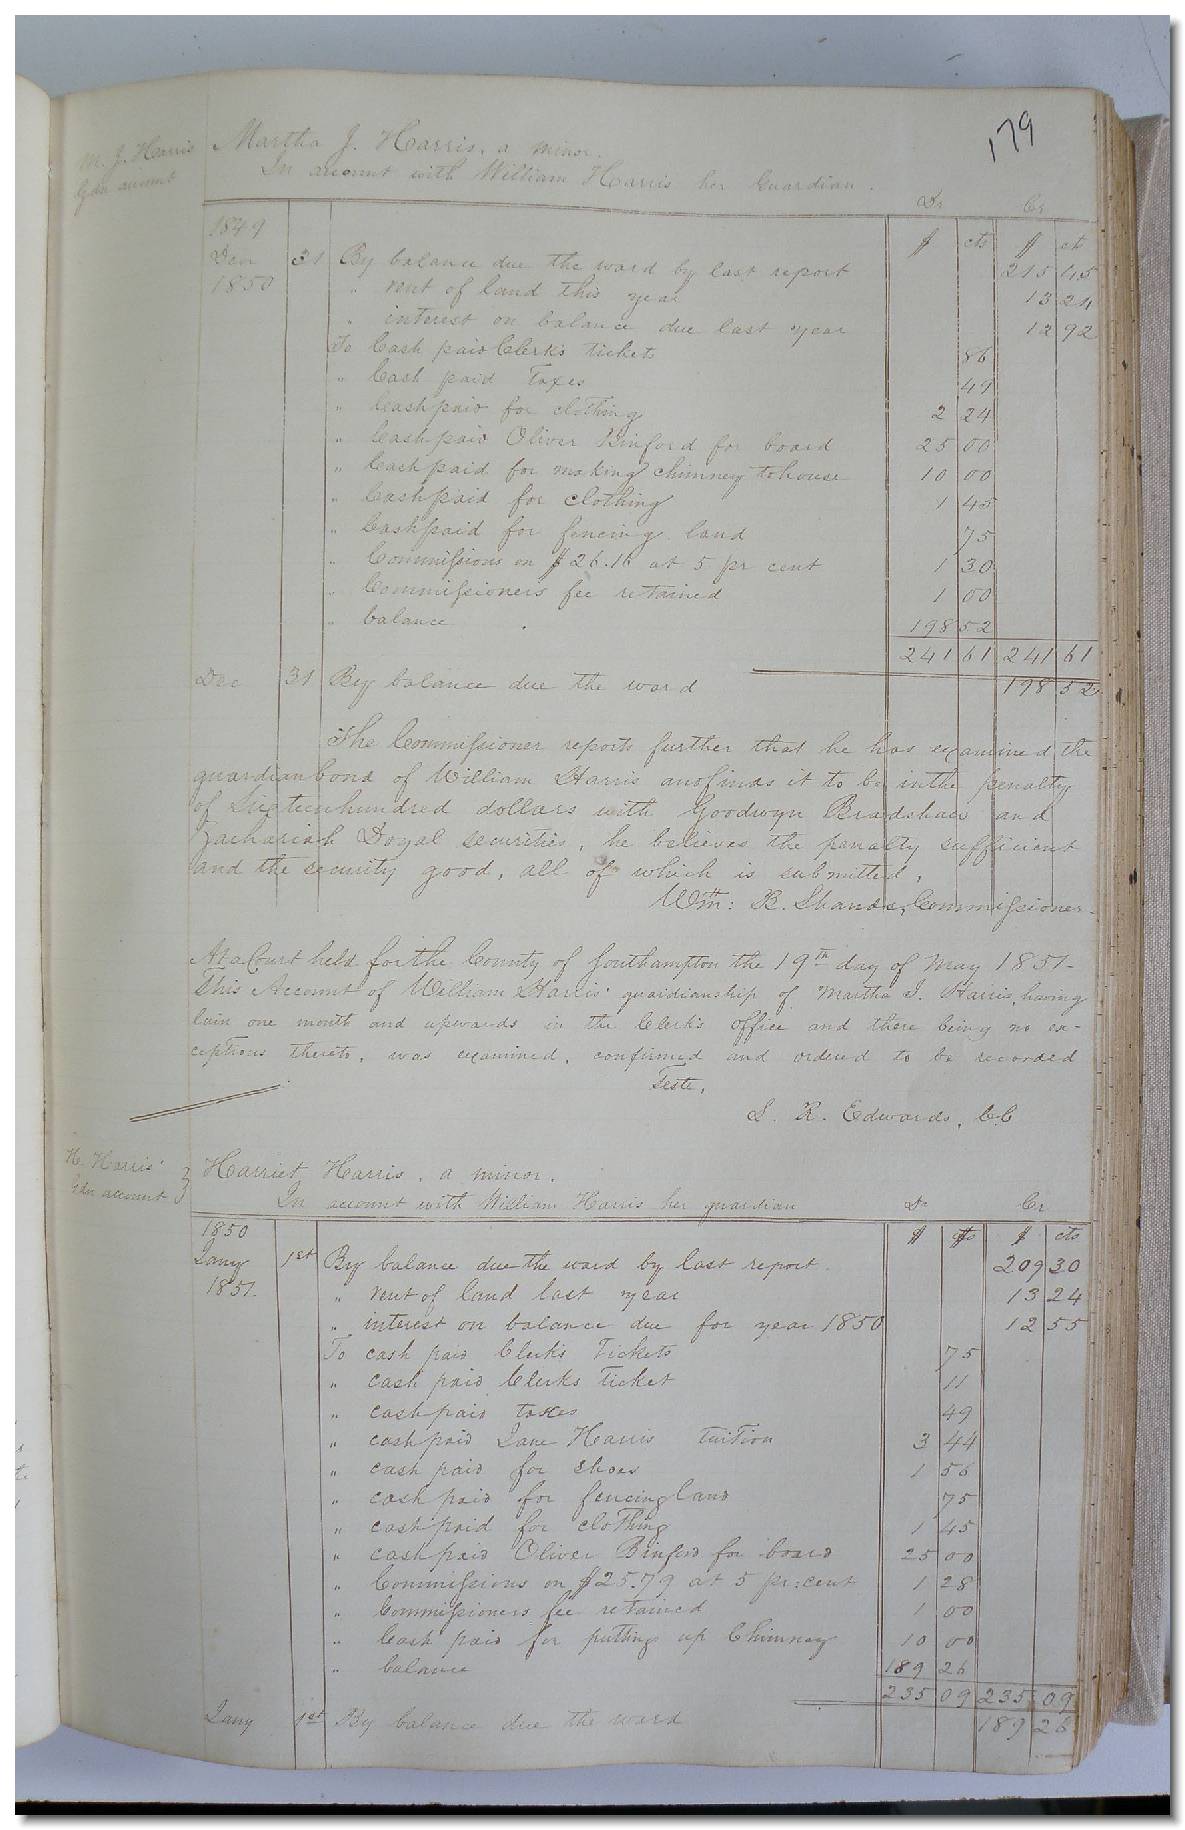 179
M. J. Harris
Gdn account
Martha J. Harris, a minor.
In account with William Harris her Guardian.
Dr Cr
1849 $ cts $ ct
Decr 31 By balance due the ward by last report 215 45
1850 " rent of land this year 13 24
" interest on balance due last year 12 92
To Cash paid Clerk's tickets 86
" Cash paid Taxes 49
" Cash paid for clothing 2 24
" Cash paid Oliver Binford for board 25 00
" Cash paid for making chimney to house 10 00
" Cash paid for clothing 1 45
" Cash paid for fencing land 75
" Commissions on $26.16 at 5 pr cent 1 30
" Commissioners fee retained 1 00
" balance 198 52
241 61 241 61
Dec 31 By balance due the ward 198 52
The Commissioner reports further that he has examined the
guardian bond of William Harris and finds it to be in the penalty
of Sixteen hundred dollars with Goodwyn Bradshaw and
Zachariah Doyal securities, he believes the penalty sufficient
and the security good, all of which is submitted,
Wm: B. Shands, Commissioner
At a Court held for the County of Southampton the 19th day of May 1851-
This Account of William Harris' guardianship of Martha J. Harris, having
lain one month and upwards in the Clerk's office and there being no ex-
ceptions thereto, was examined, confirmed and ordered to be recorded
Teste,
L. R. Edwards, C.C
H. Harris'
Gdn account
Harriet Harris, a minor.
In account with William Harris her guardian Dr Cr
1850 $ cts $ cts
Jany 1st By balance due the ward by last report. 209 30
1851. " rent of land last year 13 24
" interest on balance due for year 1850 12 55
To cash paid Clerk's Tickets 75
" cash paid Clerks ticket 11
" cash paid taxes 49
" cash paid Jane Harris tuition 3 44
" cash paid for shoes 1 56
" cash paid for fencing land 75
" cash paid for cloThing 1 45
" cash paid Oliver Binford for board 25 00
" Commissions on $25.79 at 5 pr: cent 1 28
" Commissioners fee retained 1 00
" Cash paid for putting up Chimney 10 00
" balance 189 26
235 09 235 09
Jany 1st By balance due the ward 189 26